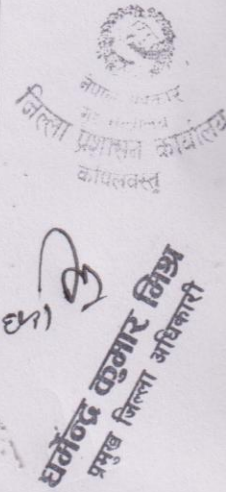 नेपाल सरकार
गृह मन्त्रालय
जिल्ला प्रशासन कार्यालय
कपिलवस्तु
धर्मेन्द्र कुमार मिश्र
प्रमुख जिल्ला अधिकारी